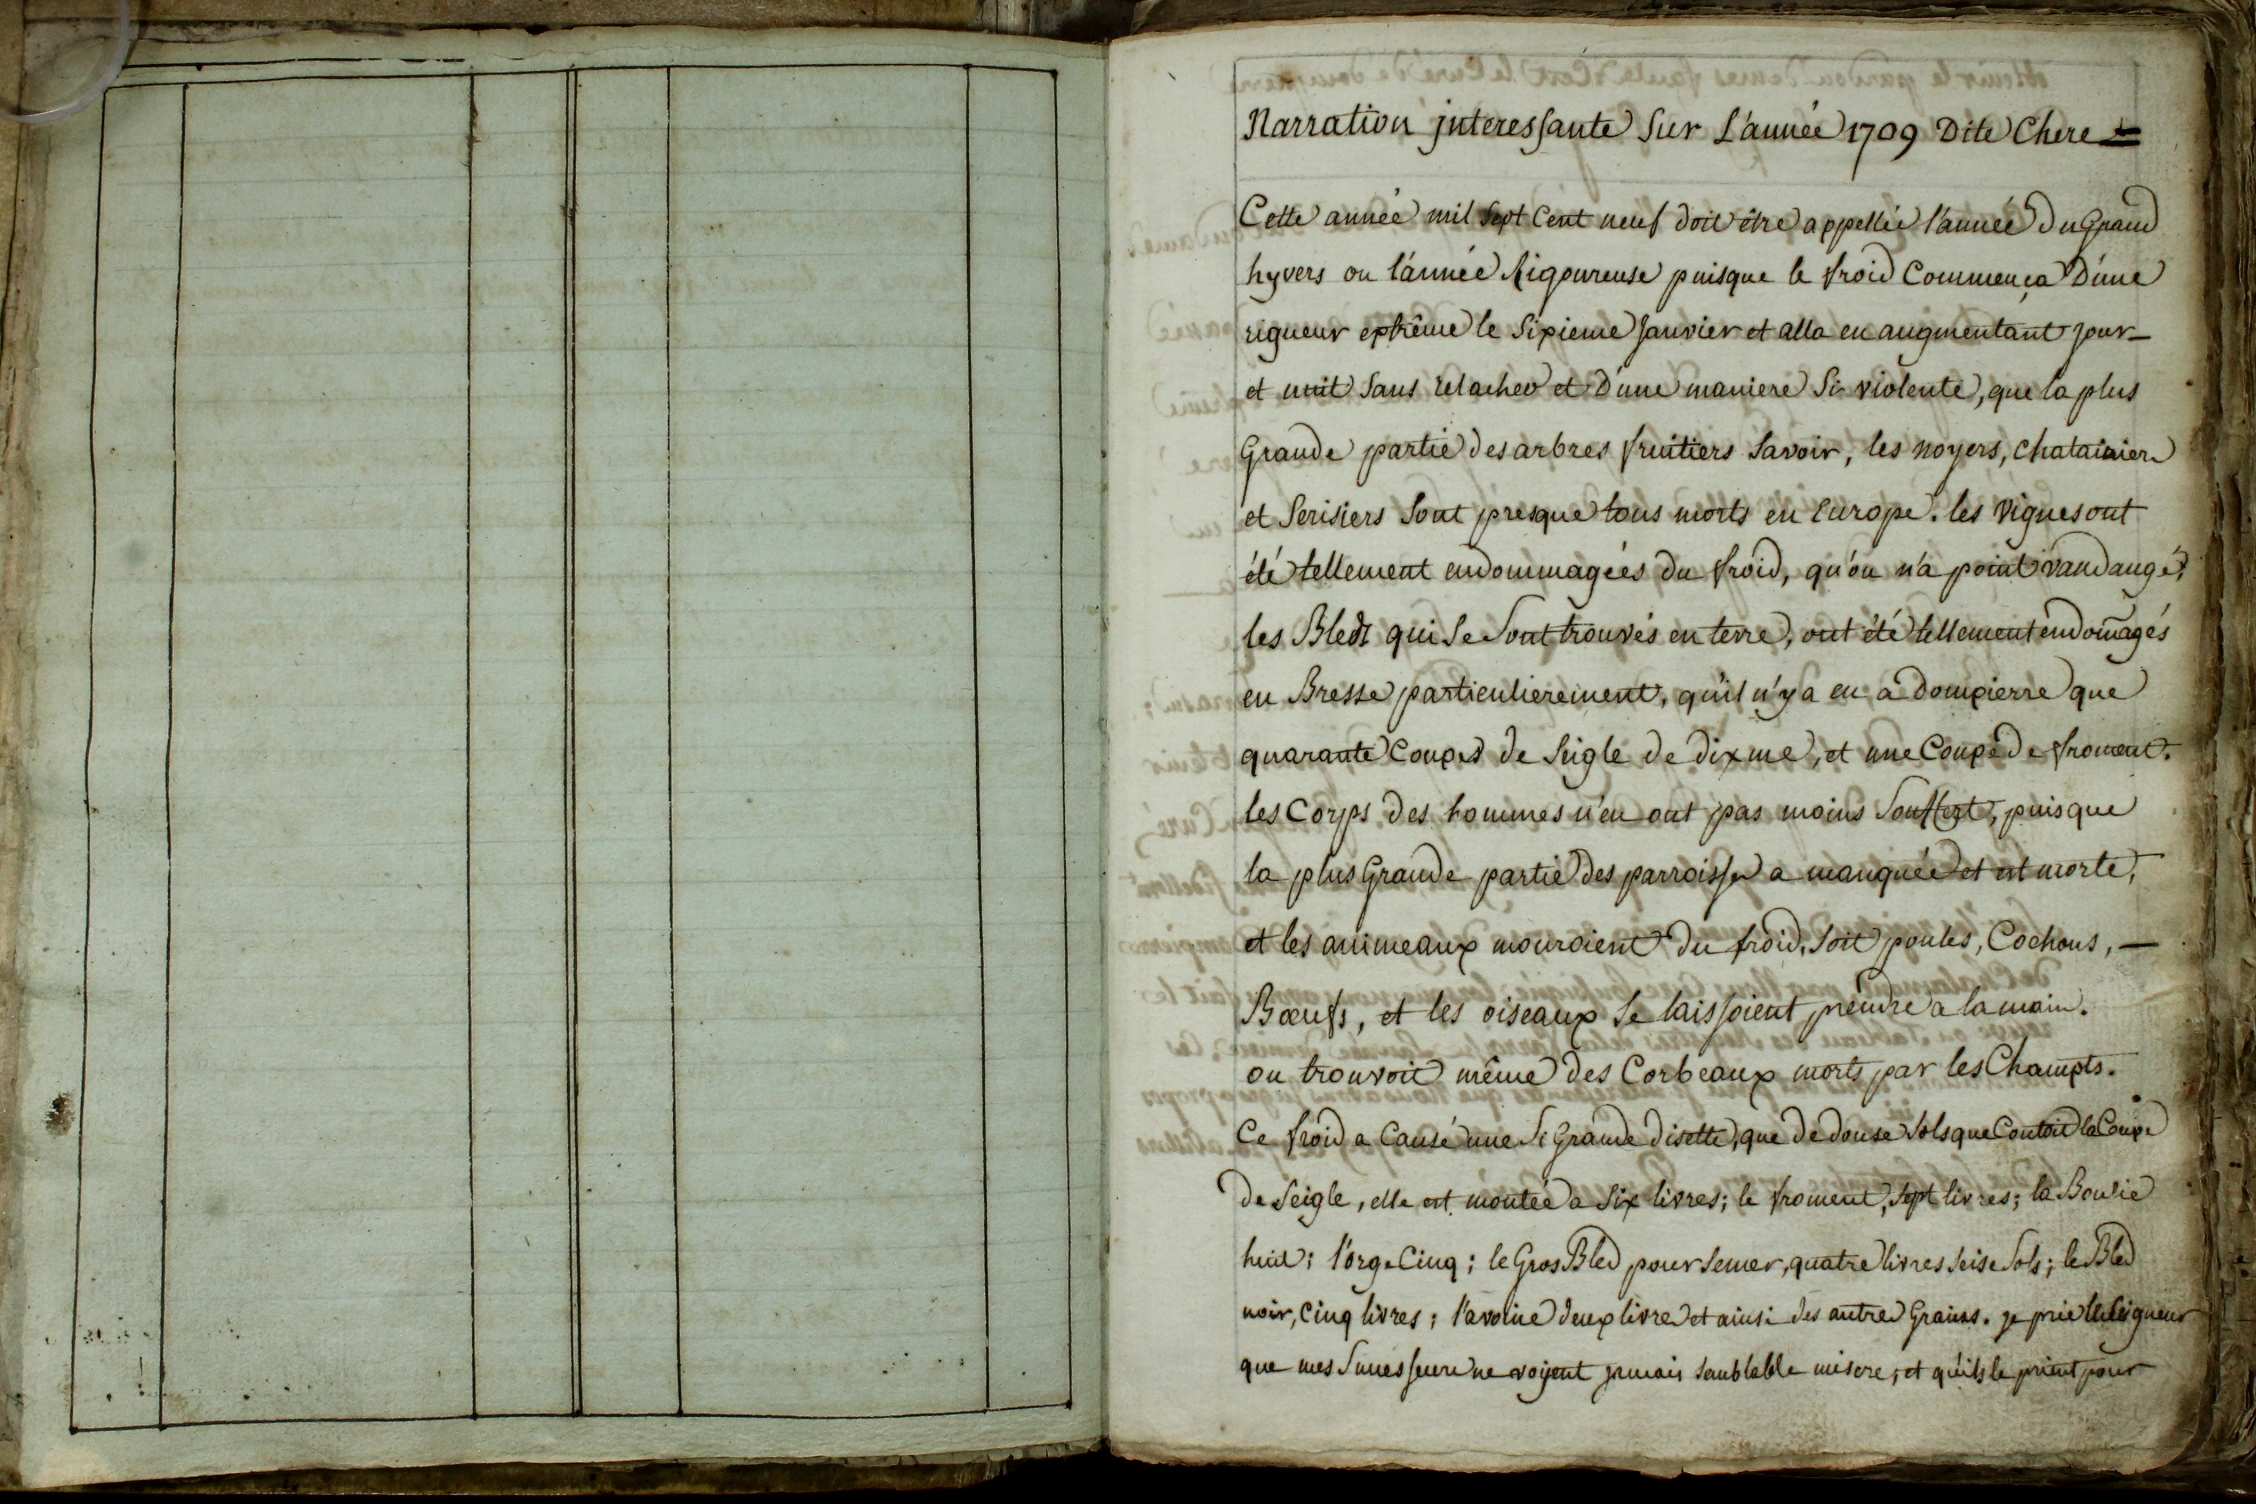 Narration jnteressante Sur L'année 1709 Dite Chere =
Cette année mil Sept Cent neuf doit être appellée l'année du Grand
hyvers ou l'année Rigoureuse puisque le froid Commença D'une
rigueur extrême le Sixieme Janvier et alla en augmentant jour –
et nuit Sans relacher et D'une maniere Si violente, que la plus
Grande partie des arbres fruitiers Savoir, les noyers, chatainiers
et Serisiers Sont presque tous morts en Europe. les vignes ont
été tellement endommagées du froid, qu'on n'a point vandangé,
les Bleds qui Se Sont trouvés en terre, ont été tellement endom̃agés
en Bresse particulierement, qu'il n'y a eu a Dompierre que
quarante Coupes de Seigle de dixme, et une Coupe de froment.
les Corps des hommes n'en ont pas moins Souffert, puis que
la plus Grande partie des parroisses a manquée et est morte,
et les animeaux mouroient du froid, Soit poules, Cochons, —
Bœufs, et les oiseaux Se laissoient prendre a la main.
on trouvoit même des Corbeaux morts par les Champts.
Ce froid a Causé une Si Grande disette, que de douse Sols que Coutoit la Coupe
de Seigle, elle est montée a Six livres; le froment, Sept livres; la
huit; l'orge Cinq; le Gros Bled pour Semer, quatre livres Seise Sols; le Bled
noir, Cinq livres; l'avoine deux livres et ainsi des autres Grains. je prie le Seigneur
que mes Successeurs ne voyent jamais Semblable misere, et qu'ils le prient pour